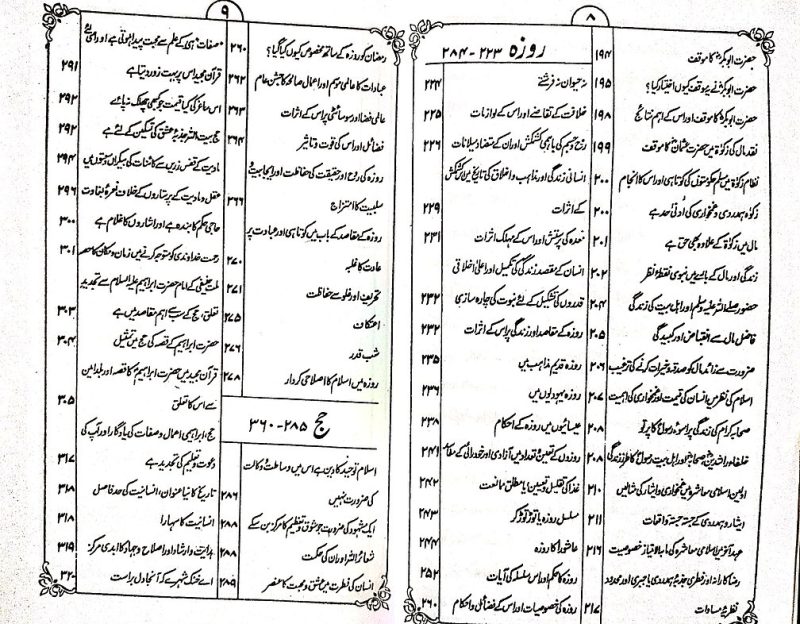 ۸
حضرت ابوبکرؓ کا موقف ۱۹۴
حضرت ابوبکرؓ نے یہ موقف کیوں اختیار کیا؟ ۱۹۵
حضرت ابوبکرؓ کا موقف اور اس کے اہم نتائج ۱۹۸
نقد مال کی زکوٰۃ میں حضرت عثمانؓ کا موقف ۱۹۹
نظام زکوٰۃ میں مسلم حکومتوں کی کوتاہی اور اس کا انجام ۲۰۰
زکوٰۃ ہمدردی و غمخواری کی ادنیٰ حد ہے ۲۰۰
مال میں زکوٰۃ کے علاوہ بھی حق ہے ۲۰۱
زندگی اور مال کے بارے میں نبوی نقطۂ نظر ۲۰۲
حضور صلے اللہ علیہ وسلم اور اہل بیت کی زندگی ۲۰۴
فاضل مال سے انقباض اور کبیدگی ۲۰۵
ضرورت سے زائد مال کو صدقہ و خیرات کرنے کی ترغیب ۲۰۶
اسلام کی نظر میں انسان کی قیمت اور غمخواری کی اہمیت ۲۰۷
صحابہ کرام کی زندگی پر اسوۂ رسولؐ کا پرتو ۲۰۸
خلفاء راشدینؓ صحابہؓ اور اہل بیت رسولؐ کا طرز زندگی ۲۰۸
اولین اسلامی معاشرہ میں غمخواری و ایثار کی مثالیں ۲۱۰
ایثار و ہمدردی کے جستہ جستہ واقعات ۲۱۱
عہد آخر میں اسلامی معاشرہ کی مابہ الامتیاز خصوصیت ۲۱۶
رضاکارانہ اور فطری جذبۂ ہمدردی یا جبری اور محدود
نظریۂ مساوات ۲۱۷
روزہ ۲۲۳-۲۸۴
نہ حیوان نہ فرشتے ۲۲۴
خلافت کے تقاضے اور اس کے لوازمات ۲۲۵
روح و جسم کی باہمی کشمکش اور ان کے متضاد میلانات ۲۲۶
انسانی زندگی اور مذاہب و اخلاق کی تاریخ میں اس کشمکش
کے اثرات ۲۲۹
معدہ کی پرستش اور اس کے مہلک اثرات ۲۳۱
انسان کے مقصد زندگی کی تکمیل اور اعلیٰ اخلاقی
قدروں کی تشکیل کے لئے نبوت کی چارہ سازی ۲۳۲
روزہ کے مقاصد اور زندگی پر اس کے اثرات ۲۳۲
روزہ قدیم مذاہب میں ۲۳۵
روزہ یہودیوں میں ۲۳۶
عیسائیوں میں روزہ کے احکام ۲۳۸
روزوں کے تعین و تعداد میں آزادی اور خود رائی کے مفاسد ۲۴۱
غذا کی تقلیل و تعیین یا مطلق ممانعت ۲۴۲
مسلسل روزہ یا توڑ توڑ کر ۲۴۳
عاشورا کا روزہ ۲۴۴
روزہ کا حکم اور اس سلسلہ کی آیات ۲۵۲
روزہ کی خصوصیات اور اس کے فضائل و احکام ۲۶۰
۹
رمضان کو روزہ کے ساتھ مخصوص کیوں کیا گیا؟ ۲۶۰
عبادات کا عالمی موسم اور اعمال صالحہ کا جشن عام ۲۶۲
عالمی فضا اور سوسائٹی پر اس کے اثرات ۲۶۳
فضائل اور اس کی قوت و تاثیر ۲۶۴
روزہ کی روح اور حقیقت کی حفاظت اور ایجابیت و
سلبیت کا امتزاج ۲۶۶
روزہ کے مقاصد کے باب میں کوتاہی اور عبادت پر
عادت کا غلبہ ۲۷۰
تحریف اور غلو سے حفاظت ۲۷۱
اعتکاف ۲۷۵
شب قدر ۲۷۶
روزہ میں اسلام کا اصلاحی کردار ۲۷۸
حج ۲۸۵-۳۶۰
اسلام توحید کا دین ہے اس میں وساطت و وکالت
کی ضرورت نہیں ۲۸۶
ایک مشہود کی ضرورت جو شوق و تعظیم کا مرکز بن سکے ۲۸۸
شعائر اللہ اور ان کی حکمت ۲۸۸
انسان کی فطرت میں عشق و محبت کا عنصر ۲۸۹
"صفات" ہی کے علم سے محبت پیدا ہوتی ہے اور اسی لئے
قرآن مجید اس پر بہت زور دیتا ہے ۲۹۱
اس ساغر کی کیا قیمت جو کبھی چھلک نہ پائے ۲۹۲
حج بیت اللہ جذبۂ عشق کی تسکین کے لئے ہے ۲۹۲
مادیت کے قفس زریں سے کائنات کی بیکراں وسعتوں میں ۲۹۴
عقل و مادیت کے پرستاروں کے خلاف نعرۂ بغاوت ۲۹۶
حاجی حکم کا بندہ ہے اور اشاروں کا غلام ہے ۳۰۰
رحمت خداوندی کو متوجہ کرنے میں زمان و مکان کا حصہ ۳۰۱
ملت حنیفی کے امام حضرت ابراہیم علیہ السلام سے تجدید
تعلق، حج کے سب سے اہم مقاصد میں ہے ۳۰۳
حضرت ابراہیم کے قصہ کی حج میں تمثیل ۳۰۴
قرآن مجید میں حضرت ابراہیم کا قصہ اور بلد امین
سے اس کا تعلق ۳۰۵
حج، ابراہیمی اعمال و صفات کی یادگار اور آپ کی
دعوت و تعلیم کی تجدید ہے ۳۱۷
تاریخ کا نیا عنوان، انسانیت کی حد فاصل ۳۱۸
انسانیت کا سہارا ۳۱۸
ہدایت و ارشاد اور اصلاح و جہاد کا ابدی مرکز ۳۱۹
اے خنک شہرے کہ آنجا دلبر است ۳۲۰